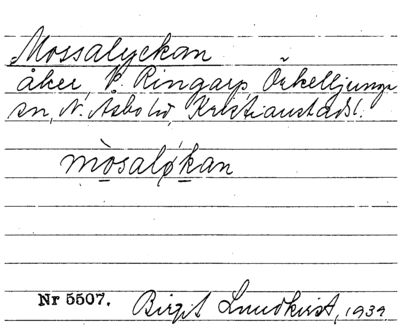 Mossalyckan
åker, V. Ringarp, Örkelljunga
sn, N. Åsbo hd, Kristianstads l.
mòsaløkan
Nr 5507. Birgit Lundkvist, 1939